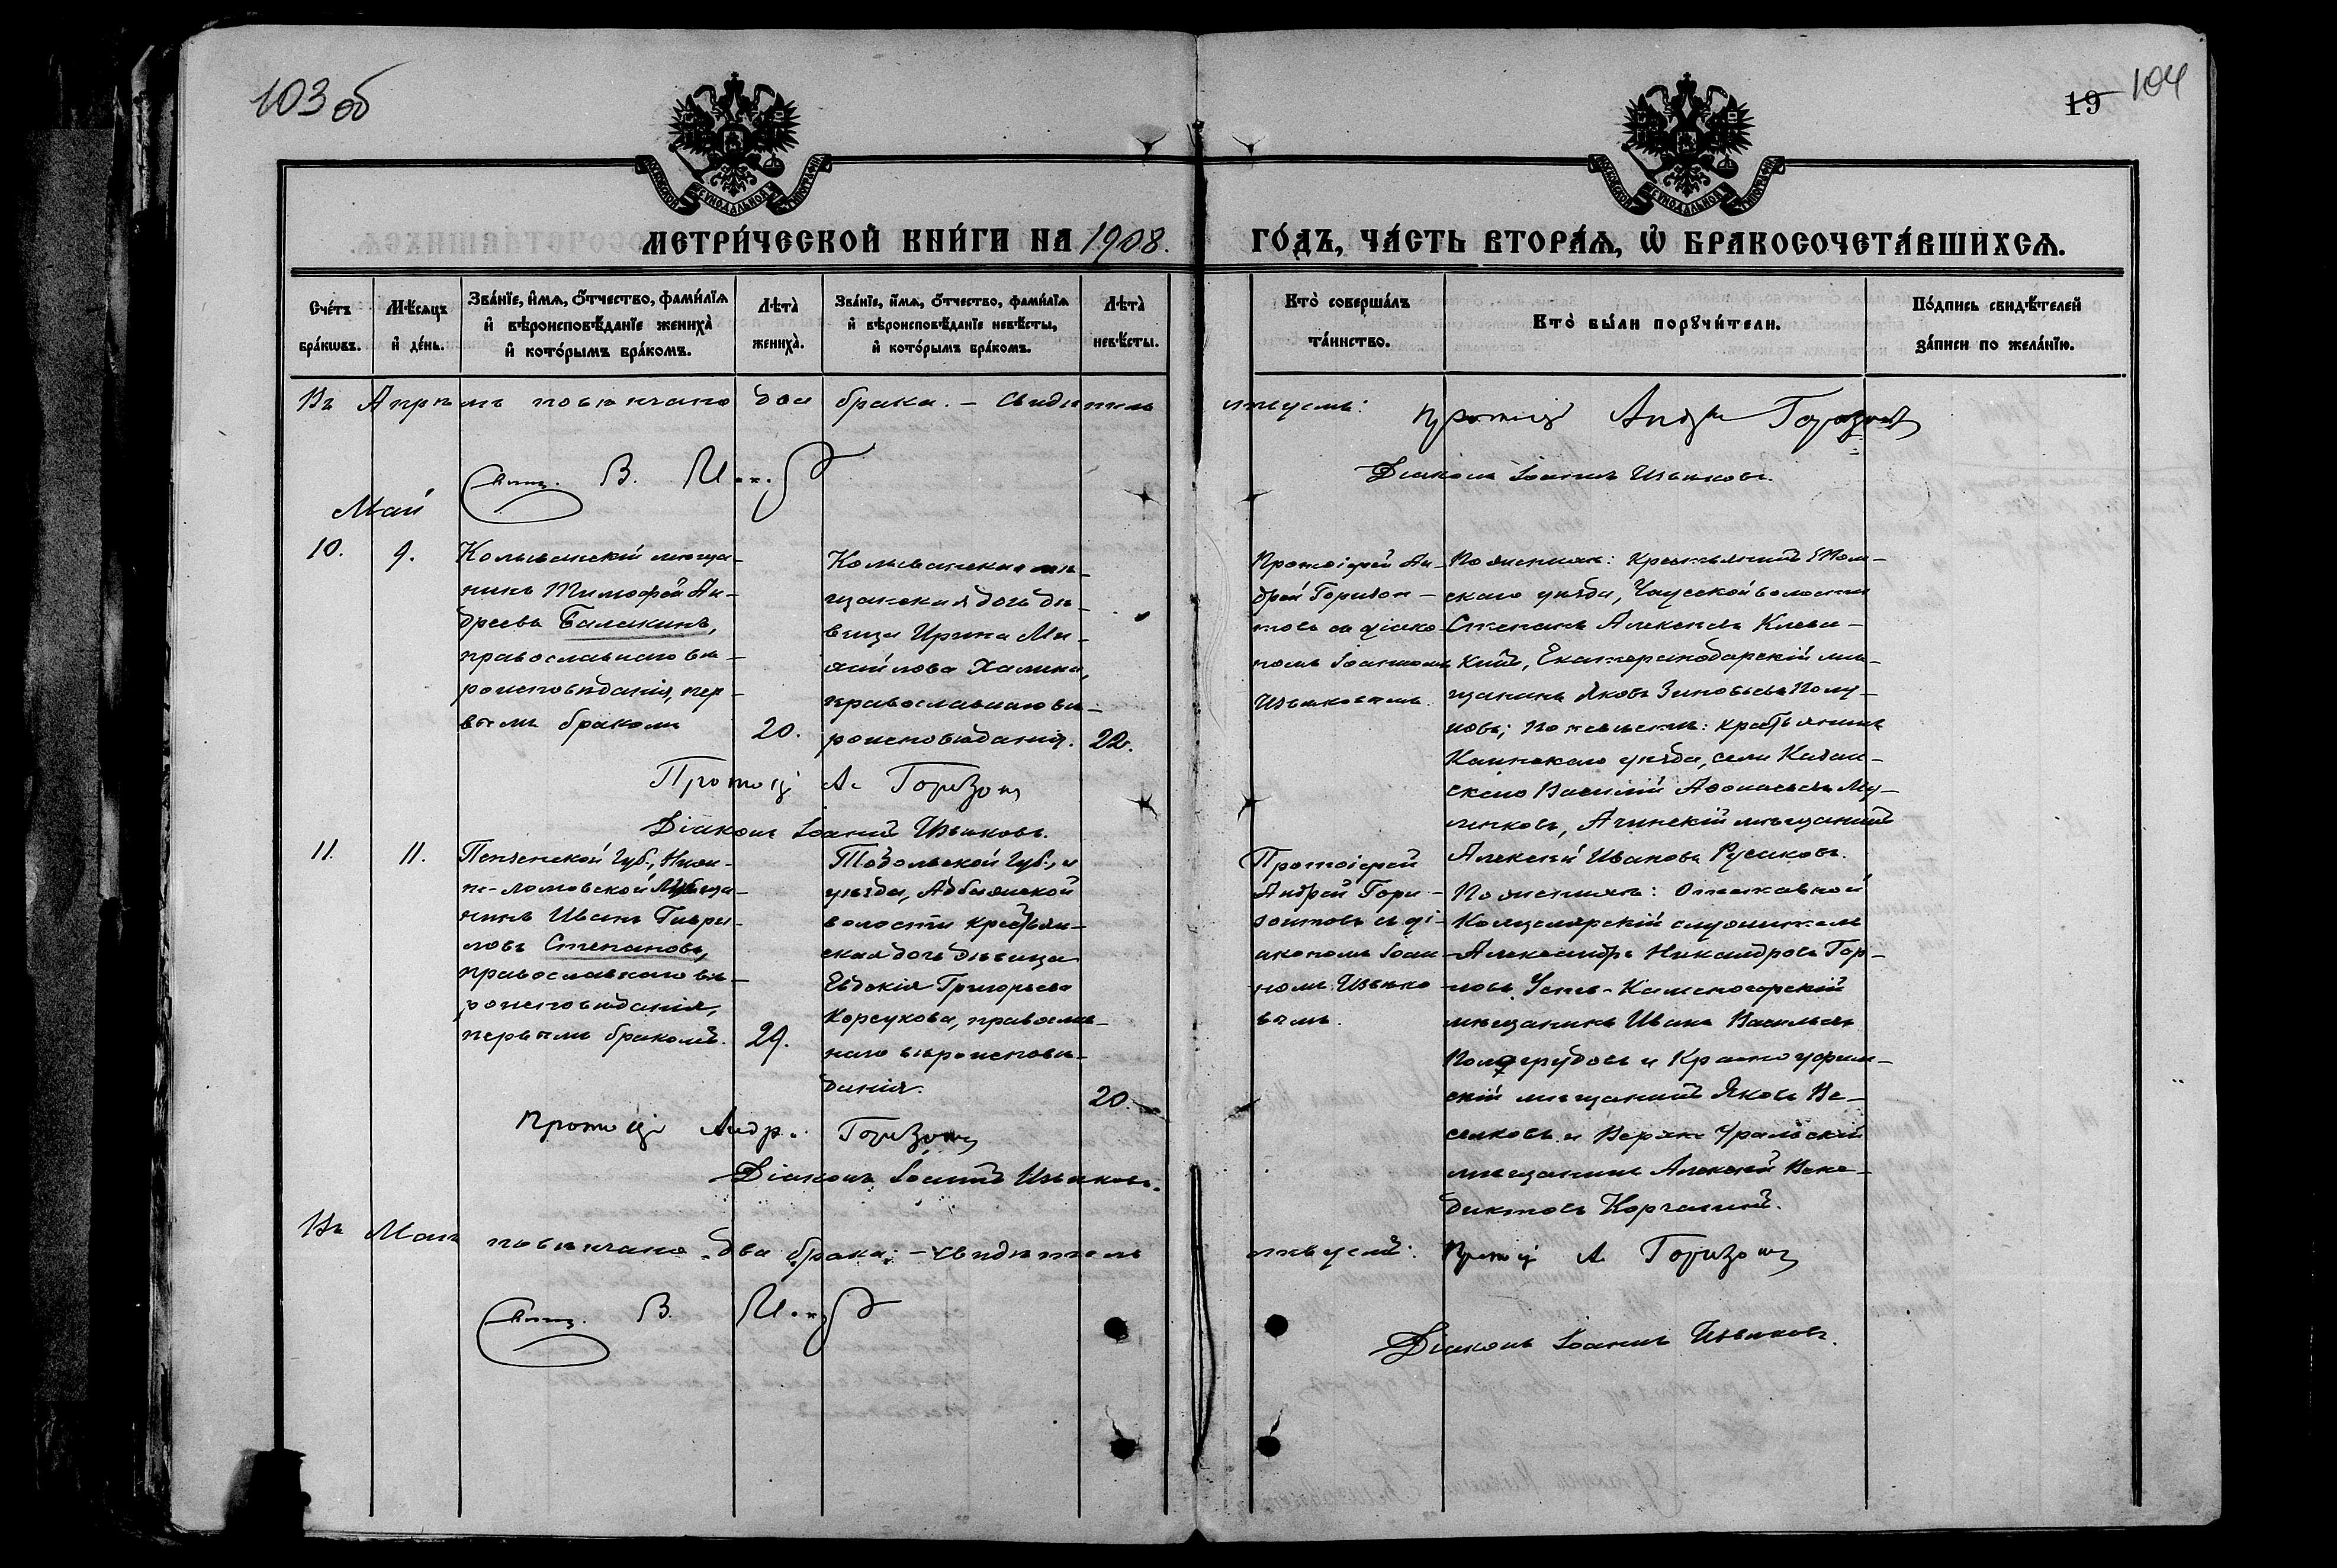 103 об
19
104
МЕТРИ́ЧЕСКОЙ КНИ́ГИ НА 1908. ГО́ДЪ, ЧА́СТЬ ВТОРА́Ѧ, Ѡ҆ БРАКОСОЧЕТА́ВШИХСѦ.
Сче́тъ бра́кѡвъ.
Мѣ́сѧцъ и҆ де́нь.
Зва́нїе, и҆́мѧ, о҆́тчество, фами́лїѧ
и҆ вѣроисповѣ́данїе жениха̀
и҆ кото́рымъ бра́комъ.
Лѣ́та̀ жениха̀.
Зва́нїе, и҆́мѧ, о҆́тчество, фами́лїѧ
и҆ вѣроисповѣ́данїе невѣ́сты,
и҆ кото́рымъ бра́комъ.
Лѣ́та̀ невѣ́сты.
Кто̀ соверша́лъ
та́инство.
Кто̀ бы́ли порꙋчи́тели.
По́дпись свидѣ́телей
за́писи по жела́нїю.
Въ Апрѣлѣ повѣнчано два брака. – Свидѣтель
ствуемъ: Протоіер Андрей Горизонтовъ
Свящ. В.
Діаконъ Іоаннъ Ивановъ.
Май
10. 9.
Колыванскій мѣща-
нинъ Тимофей Ан-
дреевъ Балакинъ,
православнаго вѣ-
роисповѣданія, пер-
вымъ бракомъ
20.
Колыванская мѣ-
щанская дочь дѣ-
вица Ирина Ми-
хайлова Халина,
православнаго вѣ-
роисповѣданія.
22.
Протоіерей Ан-
дрей Горизон-
товъ съ діако-
номъ Іоанномъ
По женихѣ: крестьянинъ Том-
скаго уѣзда, Чаусской волости
Степанъ Алексѣевъ
Екатеринодарскій мѣ-
щанинъ Яковъ Зиновьевъ Полу-
новъ; По невѣстѣ: крестьянинъ
Каинскаго уѣзда, села Казан-
скаго Василій Афонасьевъ
Ачинскій мѣщанинъ
Алексѣй Ивановъ Русаковъ.
Протоіер А. Горизонт
Діаконъ Іоаннъ
11. 11.
Пензенской Губ., Ниж-
не-Ломовской мѣща-
нинъ Иванъ Гаври-
ловъ Степановъ,
православнаго вѣ-
роисповѣданія,
первымъ бракомъ.
29.
Тобольской Губ., и
уѣзда,
волости крестьян-
ская дочь дѣвица
Евдокія Григорьева
Корсукова, православ-
наго вѣроисповѣ-
данія.
20.
Протоіерей
Андрей Гори-
зонтовъ съ ді-
акономъ Іоан-
номъ
По женихѣ: Отставной
Канцелярскій служитель
Александръ Никандровъ Гор-
ловъ, Усть-Каменогорскій
мѣщанинъ Иванъ Васильевъ
и Красноуфим-
скій мѣщанинъ Яковъ Ве-
селковъ и Верхне Уральскій
мѣщанинъ Алексѣй Вене-
диктовъ Корчагинъ.
Протоіер Андр. Горизонт
Діаконъ Іоаннъ
Въ Маѣ повѣнчано два брака. – Свидѣтель
ствуемъ: Протоіер А. Горизонт
Свящ. В.
Діаконъ Іоаннъ